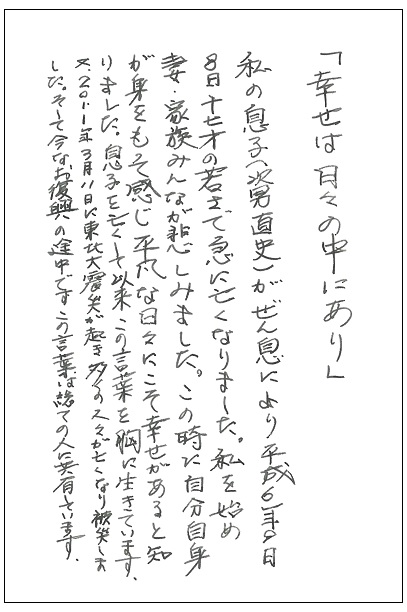 「幸せは日々の中にあり」
私の息子(次男直史)がぜん息により平成6年9日
8日十七才の若さで急に亡くなりました。私を始め
妻・家族みんなが悲しみました。この時に自分自身
が身をもって感じ平凡な日々にこそ幸せがあると知
りました。息子を亡くして以来この言葉を胸に生きています。
又、2011年3月11日に東北大震災が起き多くの人々が亡くなり被災しま
した。そして今なお復興の途中ですこの言葉は総ての人に共有しています。